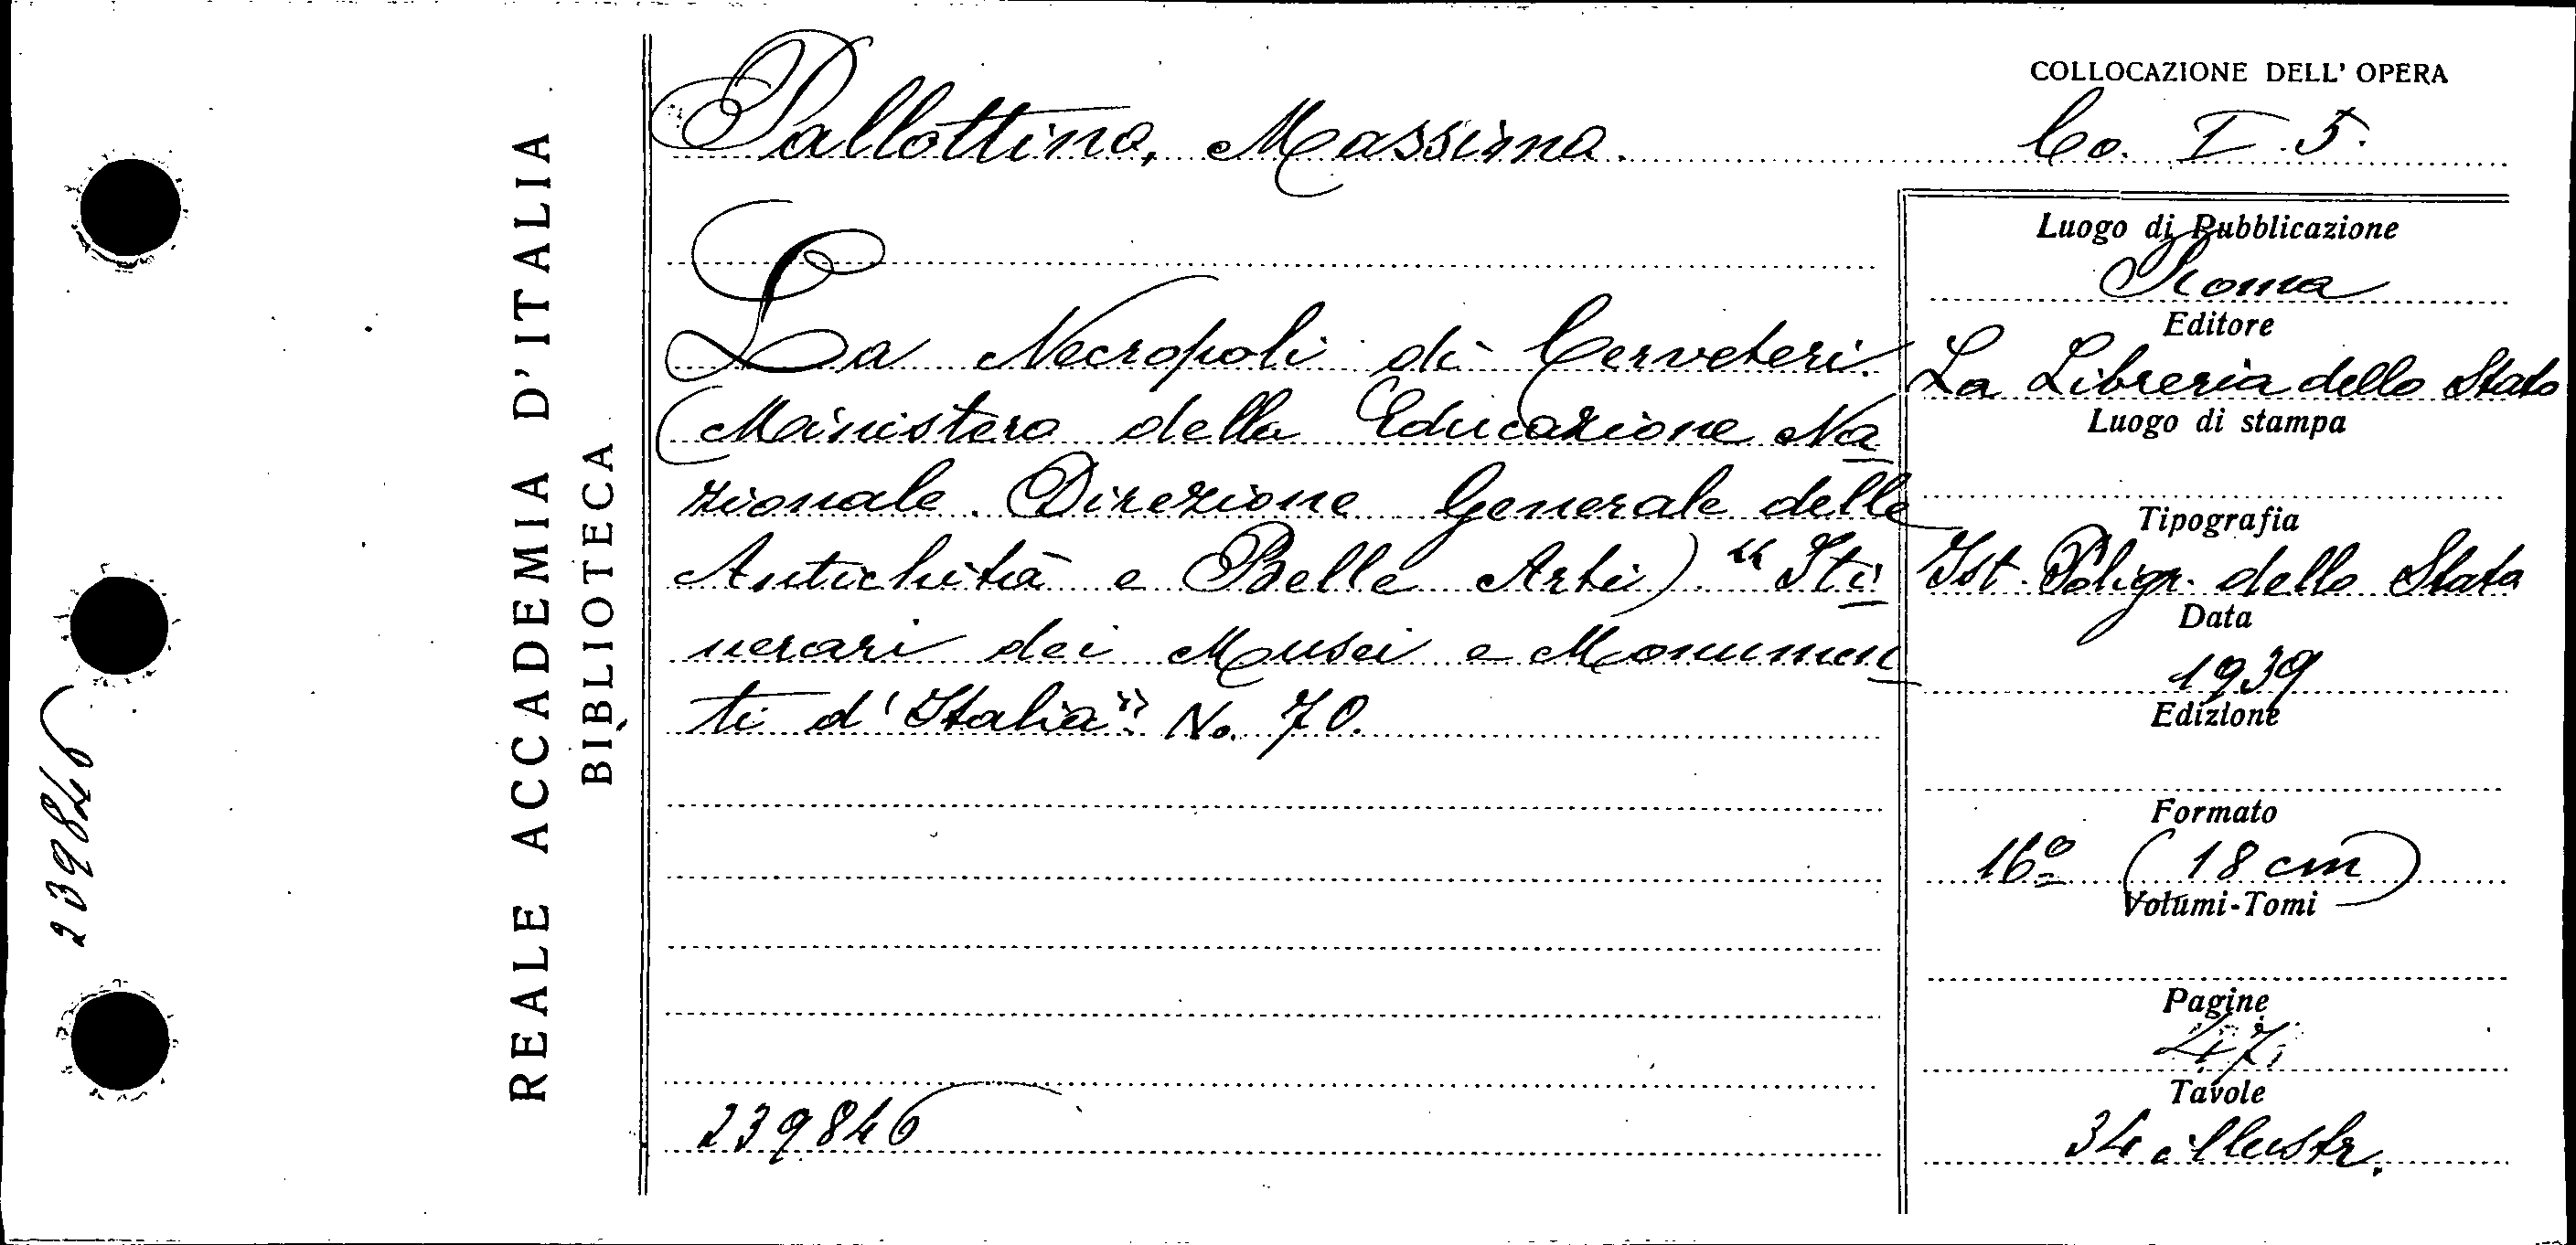 COLLOCAZIONE DELL' OPERA
Pallottino, Massimo.
Co. I. 5.
La Necropoli di Cerveteri.
(Ministero della Educazione Na
zionale. Direzione Generale delle
Antichità e Belle Arti) "Iti
nerari dei Musei e Monumen
ti d'Italia" No. 70.
239846
Luogo di Pubblicazione
Roma
Editore
La Libreria dello Stato
Luogo di stampa
Tipografia
Ist. Poligr. dello Stato
Data
1939
Edizione
Formato
16º (18 cm)
Volumi-Tomi
Pagine
47
Tavole
34 illustr.
REALE ACCADEMIA D'ITALIA
BIBLIOTECA
239846